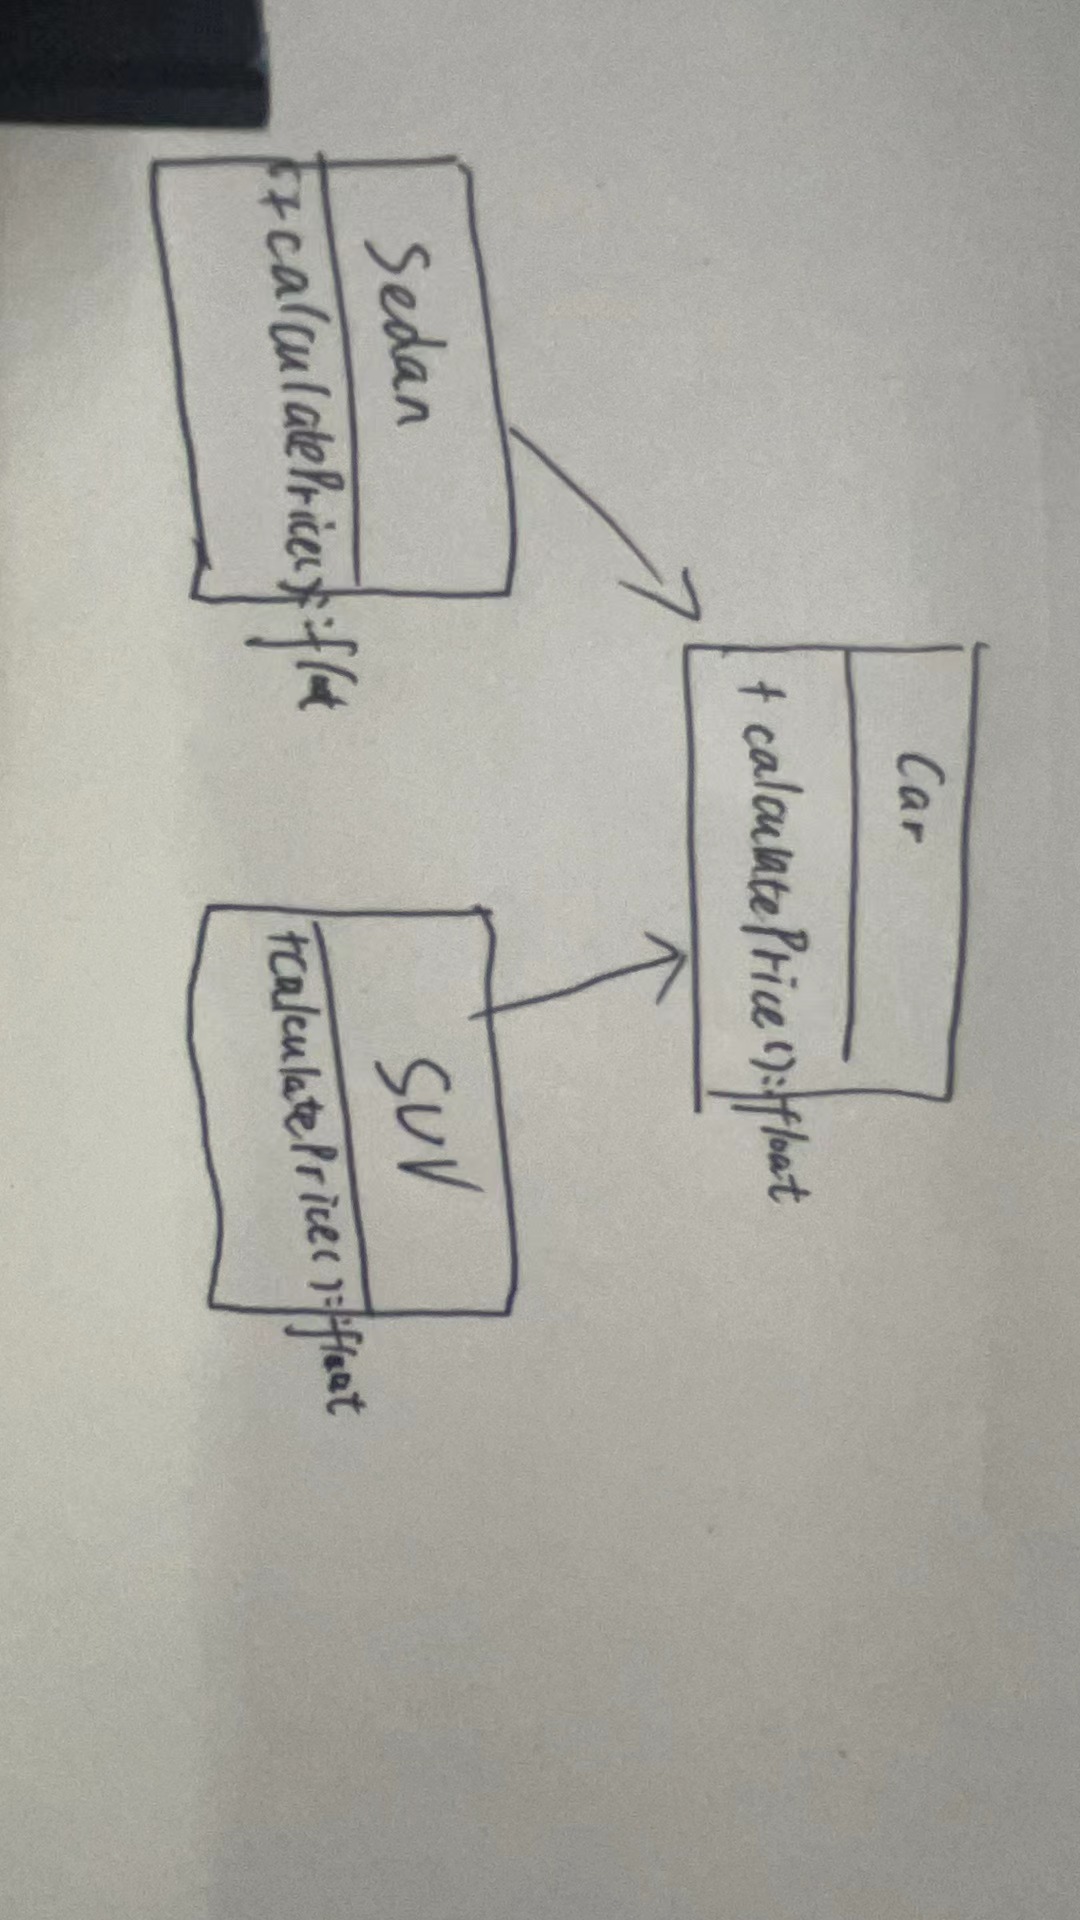 Car
+ calculatePrice():float
Sedan
+calculatePrice():float
SUV
+calculatePrice():float